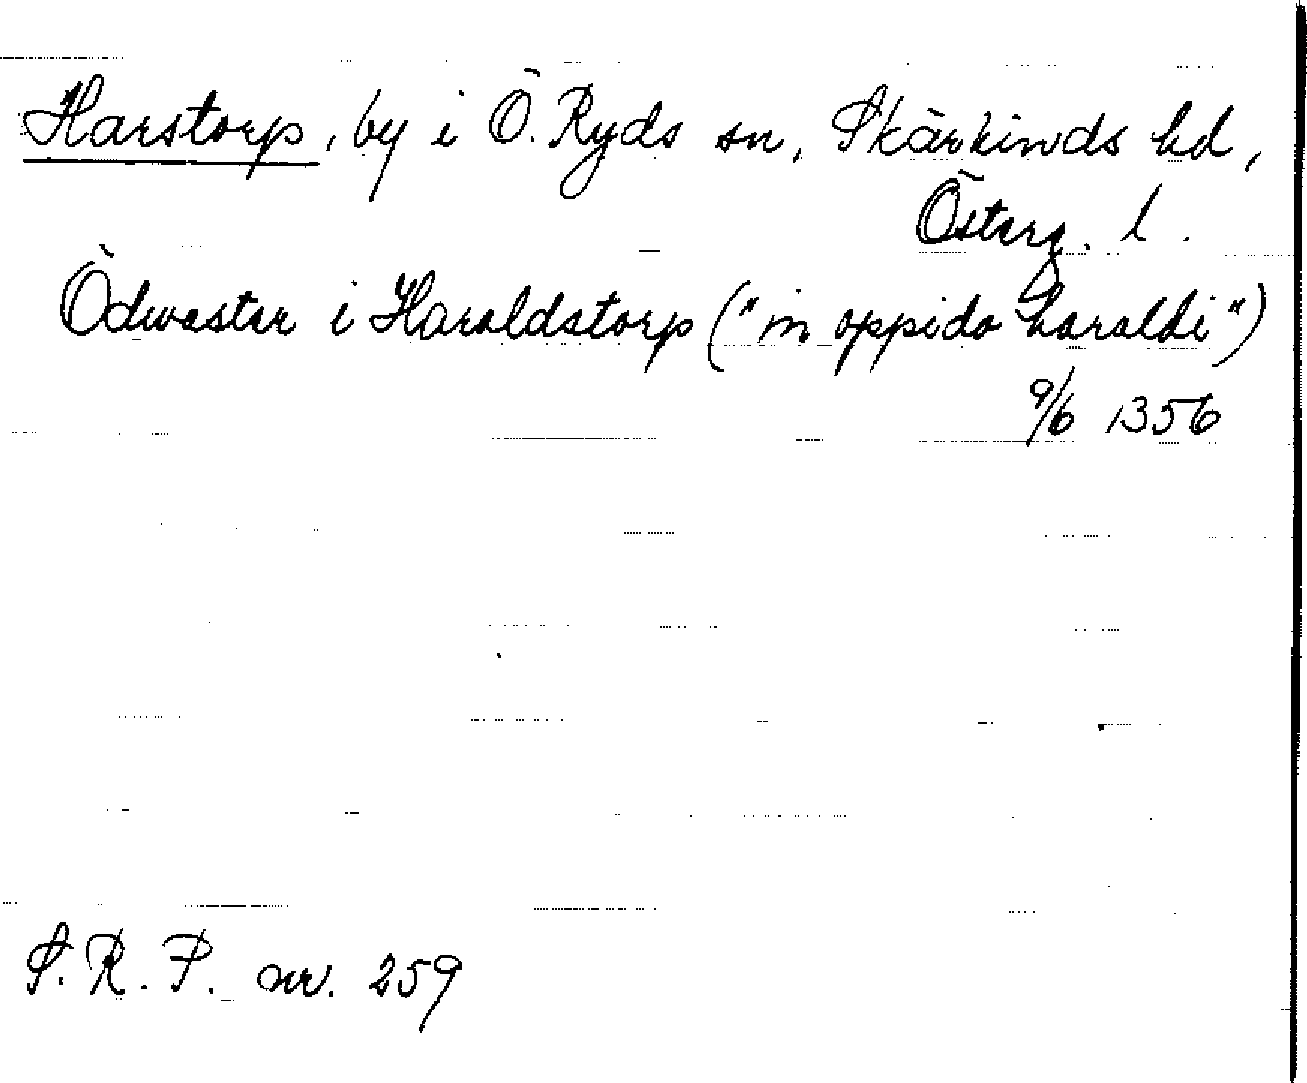 Harstorp, by i Ö. Ryds sn, Skärkinds hd,
Österg. l.
Ödwaster i Haraldstorp ("in oppido haraldi")
9/6 1356
S. R. P. nr. 259